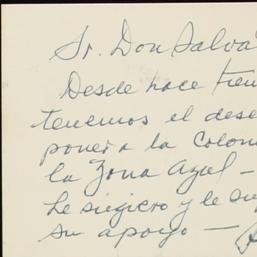 Sr. Don Salva
Desde hace tiem
tenemos el dese
poner a la Colon
la Zona Azul —
Le sugiero y le su
su apoyo —